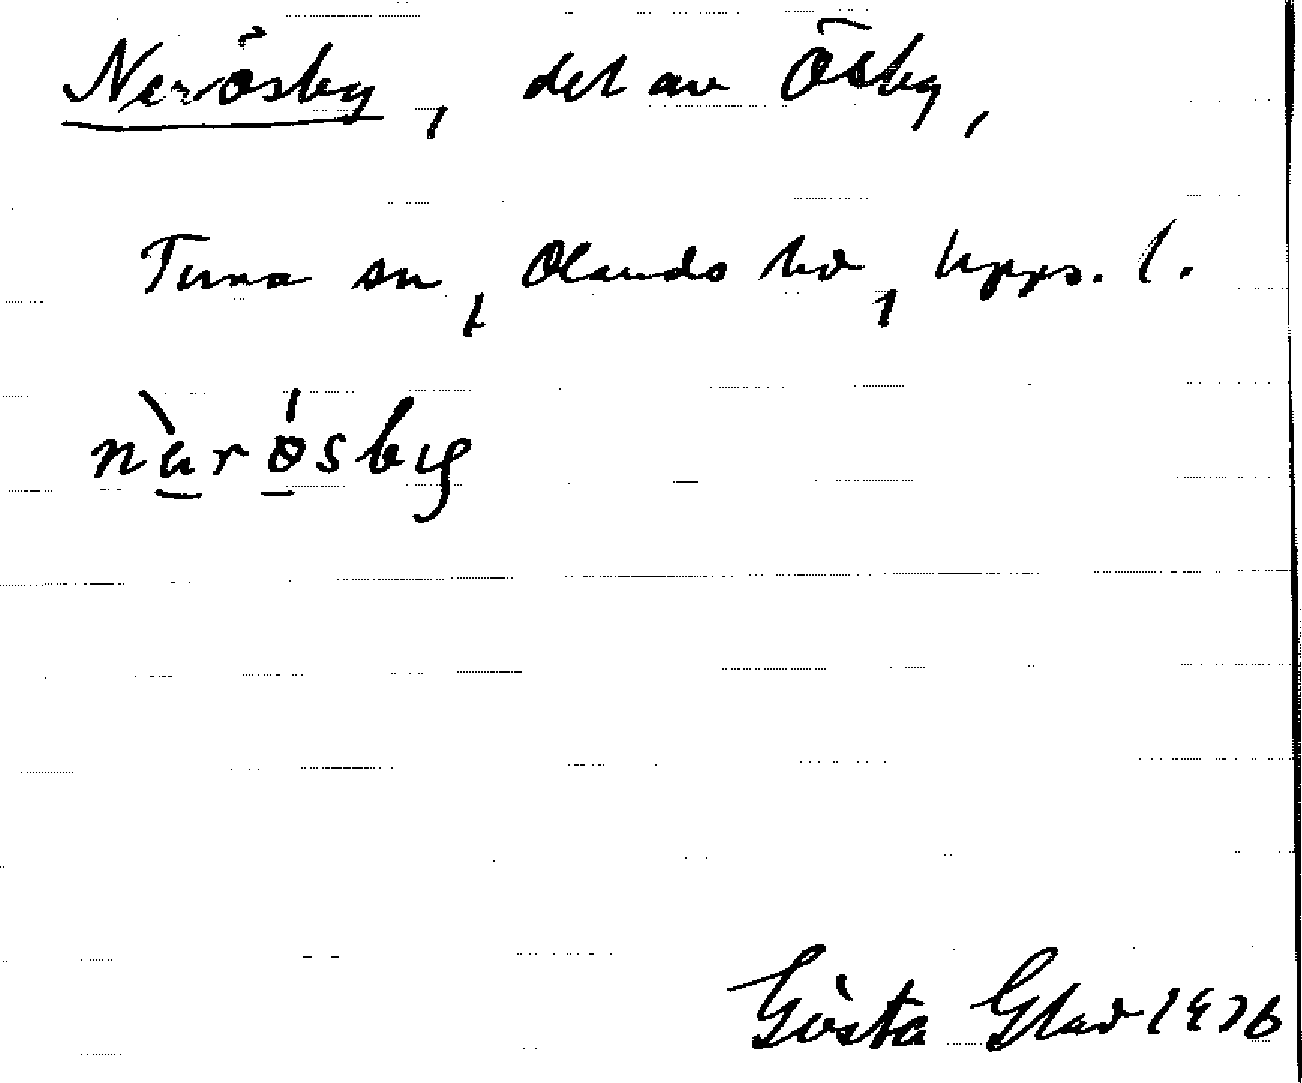 Nerösby, del av Ösby,
Tuna sn, Olands hd, Upps. l.
nàrö́sby
Gösta Glad 1976